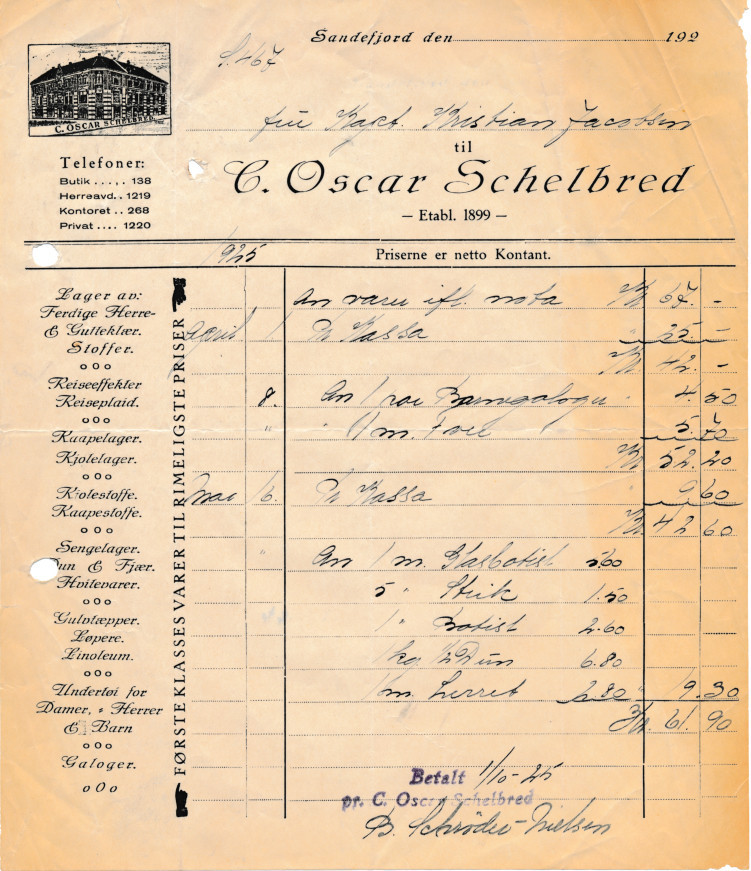 Sandefjord den 192
S. 467
C. OSCAR SCHELBRED
fru Kapt. Kristian Jacobsen
til
Telefoner:
C. Oscar Schelbred
Butik . . . , . . 138
Herreavd. . 1219
Kontoret . . 268
Privat . . . . 1220
– Etabl. 1899 –
1925
Priserne er netto Kontant.
Lager av:
Ferdige Herre-
& Gutteklær.
Stoffer.
o O o
Reiseeffekter
Reiseplaid.
o O o
Kaapelager.
Kjolelager.
o O o
Kjolestoffe.
Kaapestoffe.
o O o
Sengelager.
Dun & Fjær.
Hvitevarer.
o O o
Gulvtæpper.
Løpere.
Linoleum.
o O o
Undertøi for
Damer, - Herrer
& Barn
o O o
Galoger.
o O o
FØRSTE KLASSES VARER TIL RIMELIGSTE PRISER
An varer ifl. nota Kr 67. -
April 1 Pr Kassa " 25 -
Kr 42. -
8. An 1 par Barnegaloger " 4.50
" " 1 m. 5.70
Kr 52.20
Mai 6. Pr Kassa " 9.60
Kr 42.60
" An 1 m. Glasbatist 5.60
5 " Strik 1.50
1 " Batist 2.60
1 kg. Dun 6.80
1 m. Lerret 2.80 " 19.30
Kr. 61.90
Betalt 1/10-25
pr. C. Oscar Schelbred
B. Schrøder-Nielsen